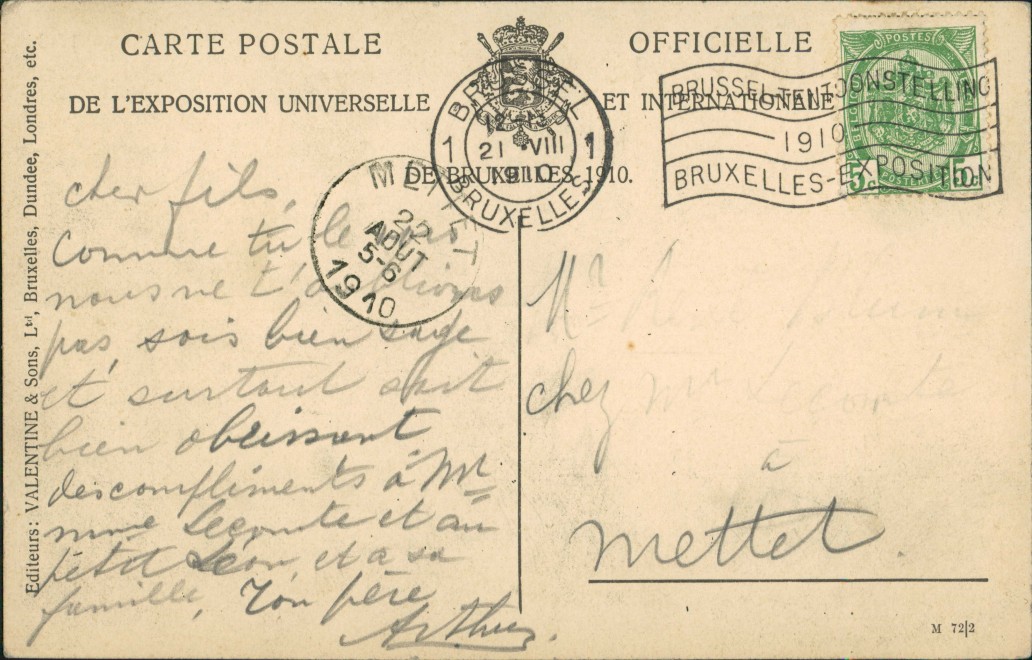 CARTE POSTALE OFFICIELLE
DE L'EXPOSITION UNIVERSELLE ET INTERNATIONALE
DE BRUXELLES 1910.
BRUSSEL
1 12-13 1
21 VIII
1910
BRUXELLES
BRUSSEL-TENTOONSTELLING
1910
BRUXELLES-EXPOSITION
POSTES
5c 5c
METTET
22
AOUT
5-6
1910
Editeurs: VALENTINE & Sons, Ltd, Bruxelles, Dundee, Londres, etc.
cher fils,
Comme tu le vois
nous ne t'oublions
pas, sois bien sage
et surtout soit
bien obeissant
des compliments à Mr
mme Lecomte et au
petit Léon, et a sa
famille, Ton père
Arthur.
Mr
chez Mr Lecomte
à
Mettet.
M 72|2